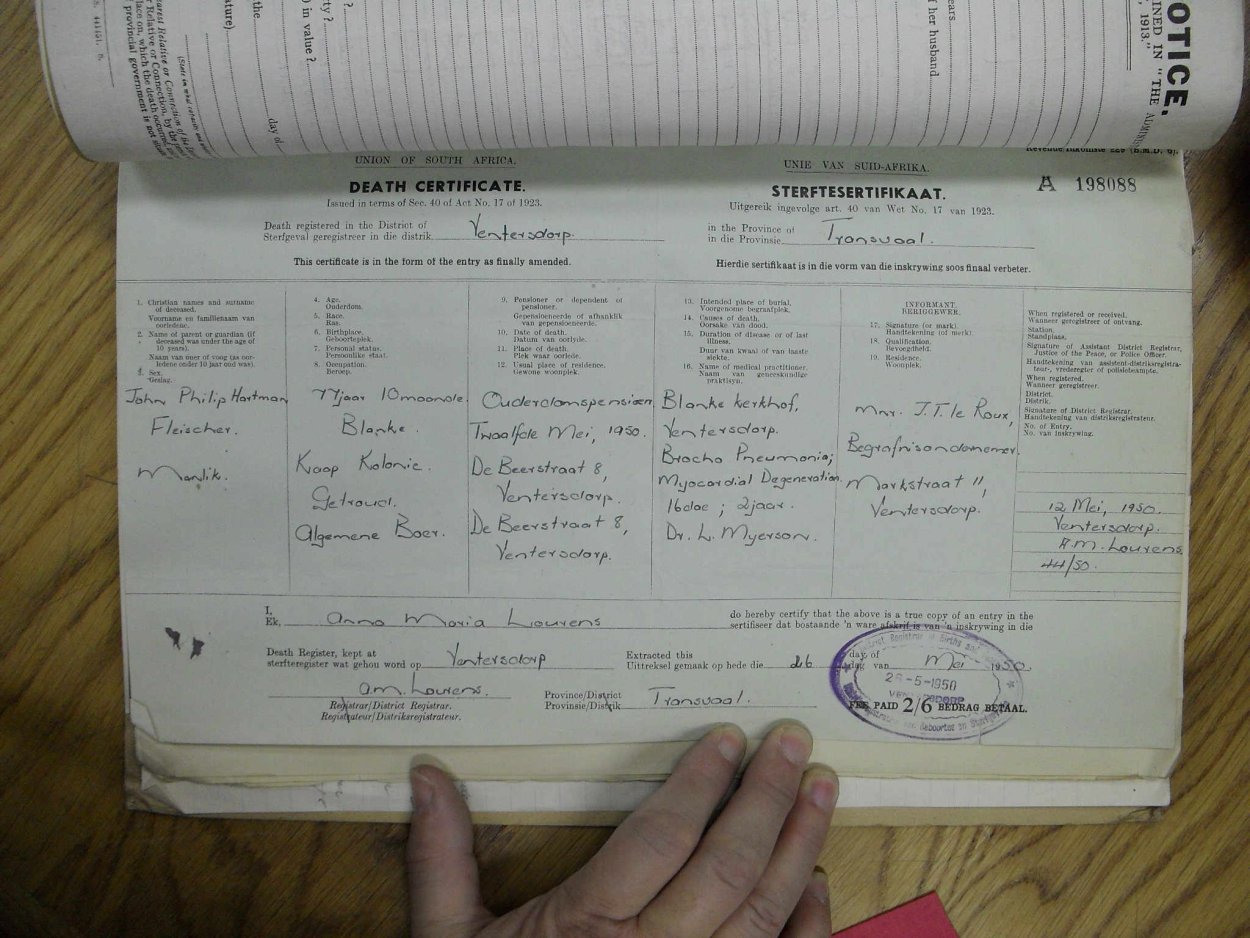 OTICE.
INED IN "THE
, 1913."
ears
f her husband
ty ?
) in value ?
the
ature)
day of
UNION OF SOUTH AFRICA.
UNIE VAN SUID-AFRIKA.
DEATH CERTIFICATE.
STERFTESERTIFIKAAT.
A 198088
Issued in terms of Sec. 40 of Act No. 17 of 1923.
Uitgereik ingevolge art. 40 van Wet No. 17 van 1923.
Death registered in the District of
Sterfgeval geregistreer in die distrik Ventersdorp.
in the Province of
in die Provinsie Transvaal.
This certificate is in the form of the entry as finally amended.
Hierdie sertifikaat is in die vorm van die inskrywing soos finaal verbeter.
1. Christian names and surname
of deceased.
Voorname en familienaam van
oorledene.
2. Name of parent or guardian (if
deceased was under the age of
10 years).
Naam van ouer of voog (as oor-
ledene onder 10 jaar oud was).
3. Sex.
Geslag.
John Philip Hartman
Fleischer.
Manlik.
4. Age.
Ouderdom.
5. Race.
Ras.
6. Birthplace.
Geboorteplek.
7. Personal status.
Persoonlike staat.
8. Occupation.
Beroep.
77 jaar 10 maande.
Blanke.
Kaap Kolonie.
Getroud.
Algemene Boer.
9. Pensioner or dependent of
pensioner.
Gepensioeneerde of afhanklik
van gepensioeneerde.
10. Date of death.
Datum van oorlyde.
11. Place of death.
Plek waar oorlede.
12. Usual place of residence.
Gewone woonplek.
Ouderdomspensioen.
Twaalfde Mei, 1950.
De Beerstraat 8,
Ventersdorp.
De Beerstraat 8,
Ventersdorp.
13. Intended place of burial.
Voorgenome begraafplek.
14. Causes of death.
Oorsake van dood.
15. Duration of disease or of last
illness.
Duur van kwaal of van laaste
siekte.
16. Name of medical practitioner.
Naam van geneeskundige
praktisyn.
Blanke Kerkhof,
Ventersdorp.
Brocho Pneumonia;
Myocardial Degeneration.
16 dae ; 2 jaar.
Dr. L. Myerson.
INFORMANT.
BERIGGEWER.
17. Signature (or mark).
Handtekening (of merk).
18. Qualification.
Bevoegdheid.
19. Residence.
Woonplek.
Mnr. J.T. le Roux,
Begrafnisondernemer.
Markstraat 11,
Ventersdorp.
When registered or received.
Wanneer geregistreer of ontvang.
Station.
Standplaas.
Signature of Assistant District Registrar,
Justice of the Peace, or Police Officer.
Handtekening van assistent-distriksregistra-
teur, vrederegter of polisiebeampte.
When registered.
Wanneer geregistreer.
District.
Distrik.
Signature of District Registrar.
Handtekening van distriksregistrateur.
No. of Entry.
No. van inskrywing.
12 Mei, 1950.
Ventersdorp.
A.M. Lourens
44/50.
I,
Ek, Anna Maria Lourens
do hereby certify that the above is a true copy of an entry in the
sertifiseer dat bostaande 'n ware afskrif is van 'n inskrywing in die
Death Register, kept at
sterfteregister wat gehou word op Ventersdorp
Extracted this
Uittreksel gemaak op hede die 26
day of
dag van Mei 1950.
A.M. Lourens.
Registrar/District Registrar.
Registrateur/Distriksregistrateur.
Province/District
Provinsie/Distrik Transvaal.
26-5-1950
VENTERSDORP
FEE PAID 2/6 BEDRAG BETAAL.